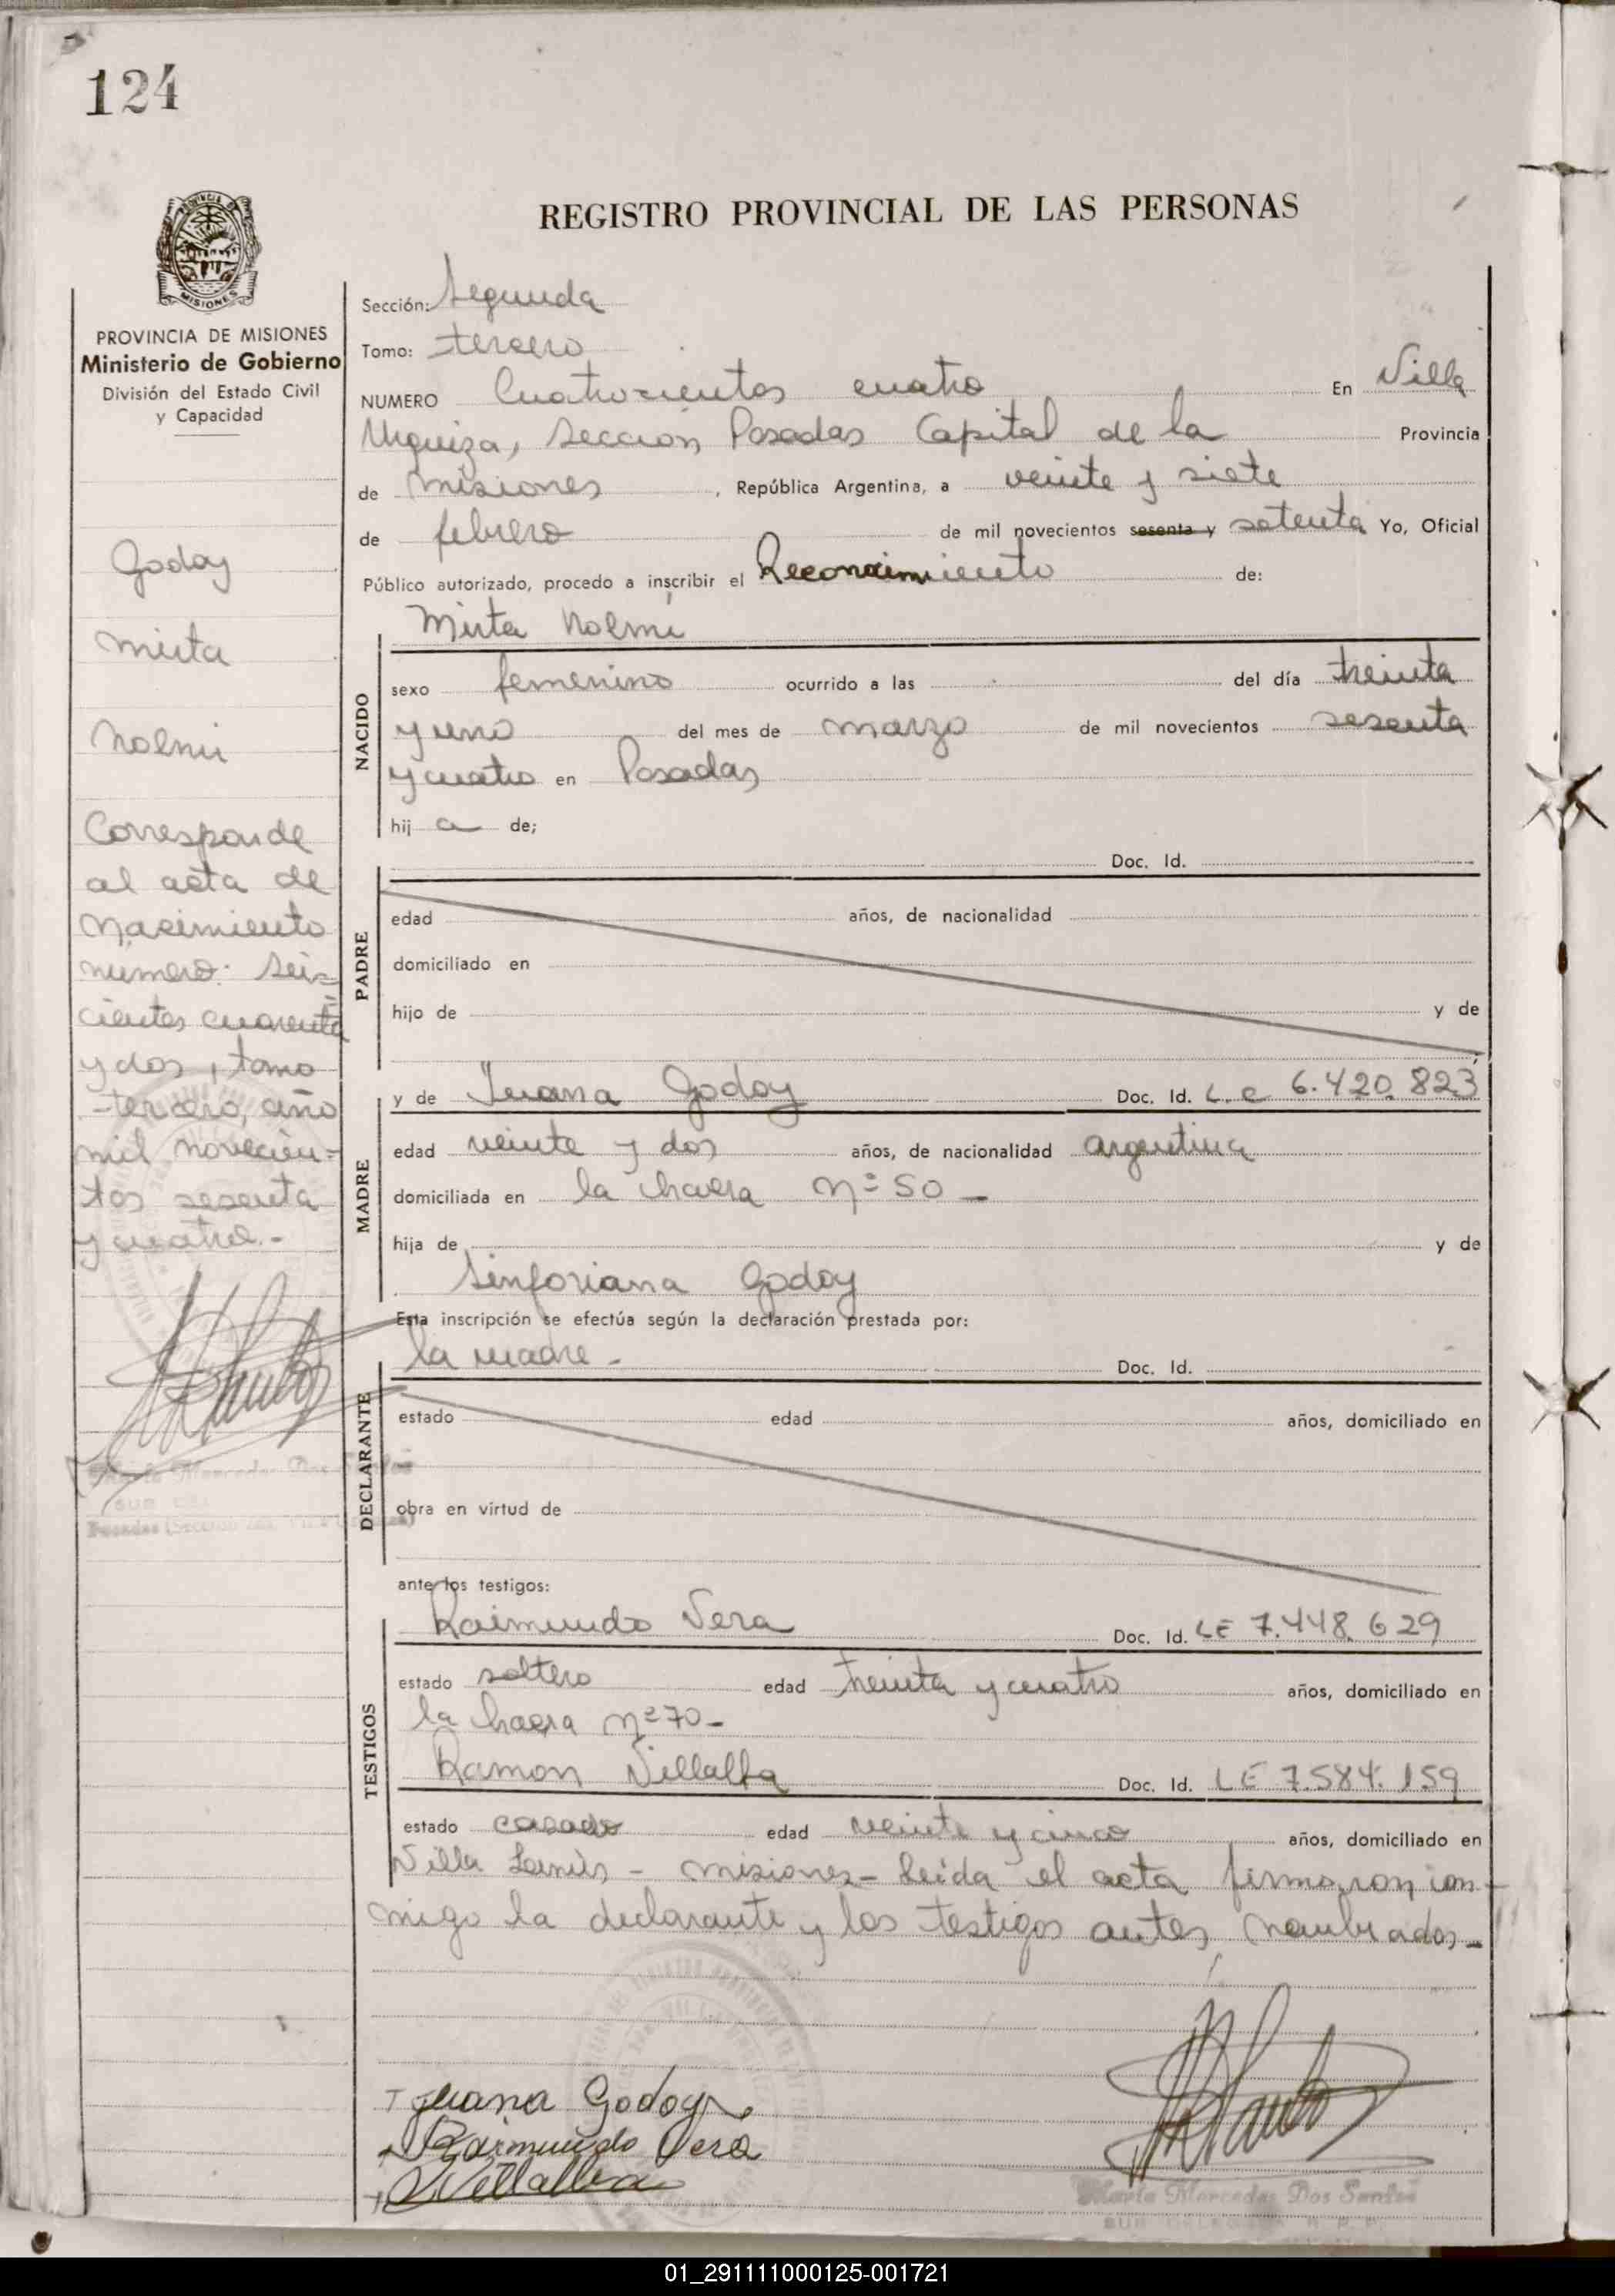 124
REGISTRO PROVINCIAL DE LAS PERSONAS
MISIONES
PROVINCIA DE MISIONES
Ministerio de Gobierno
División del Estado Civil
y Capacidad
Godoy
Mirta
Noemi
Corresponde
al acta de
nacimiento
número: seis=
cientos cuarenta
y dos, tomo
tercero, año
mil novecien=
tos sesenta
y cuatro.-
Sección: Segunda
Tomo: tercero
NUMERO Cuatrocientos cuatro En Villa
Urquiza, Sección Posadas Capital de la Provincia
de Misiones, República Argentina, a veinte y siete
de febrero de mil novecientos sesenta y setenta Yo, Oficial
Público autorizado, procedo a inscribir el Reconocimiento de:
Mirta Noemi
NACIDO
sexo femenino ocurrido a las del día treinta
y uno del mes de marzo de mil novecientos sesenta
y cuatro en Posadas
hij a de;
Doc. Id.
PADRE
edad años, de nacionalidad
domiciliado en
hijo de y de
y de Juana Godoy Doc. Id. L.C 6.420.823
MADRE
edad veinte y dos años, de nacionalidad argentina
domiciliada en la chacra nº 50 -
hija de y de
Sinforiana Godoy
Esta inscripción se efectúa según la declaración prestada por:
la madre - Doc. Id.
DECLARANTE
estado edad años, domiciliado en
obra en virtud de
ante los testigos:
Raimundo Vera Doc. Id. LE 7.448.629
TESTIGOS
estado soltero edad treinta y cuatro años, domiciliado en
la chacra nº 70 -
Ramon Villalba Doc. Id. LE 7.584.159
estado casado edad veinte y cinco años, domiciliado en
Villa Lanús - Misiones - Leída el acta firmaron con-
migo la declarante y los testigos antes nombrados -
Juana Godoy
Raimundo Vera
Villalba
Maria Mercedes Dos Santos
01_291111000125-001721